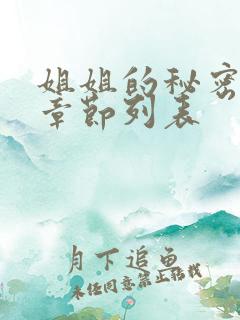 姐姐的秘密
章节列表
月下追鱼
未经同意禁止转载